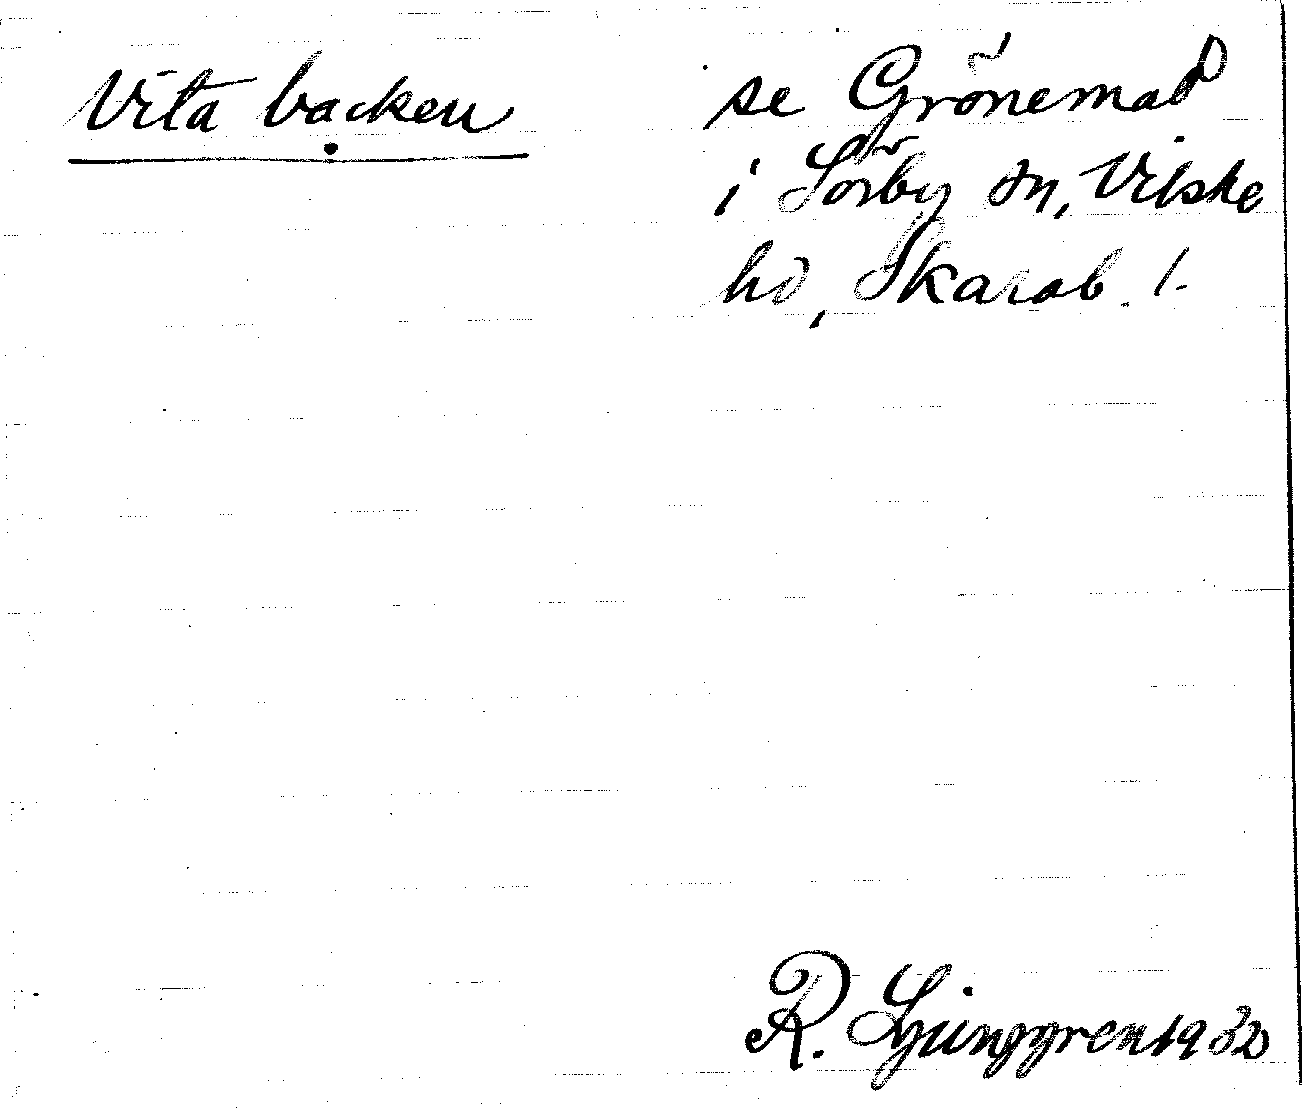 Vita backen
se Grönemad
i Sörby sn, Vilske
hd, Skarab. l.
R. Ljunggren 1932